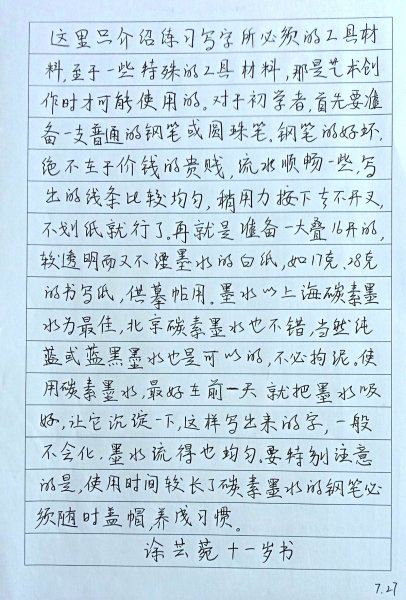 这里只介绍练习写字所必须的工具材
料,至于一些特殊的工具材料,那是艺术创
作时才可能使用的。对于初学者,首先要准
备一支普通的钢笔或圆珠笔。钢笔的好坏,
绝不在于价钱的贵贱,流水顺畅一些,写
出的线条比较均匀,稍用力按下去不开叉,
不划纸就行了。再就是准备一大叠16开的,
较透明而又不湮墨水的白纸,如17克、28克
的书写纸,供摹帖用。墨水以上海碳素墨
水为最佳,北京碳素墨水也不错,当然纯
蓝或蓝黑墨水也是可以的,不必拘泥。使
用碳素墨水,最好在前一天就把墨水吸
好,让它沉淀一下,这样写出来的字,一般
不会化,墨水流得也均匀。要特别注意
的是,使用时间较长了碳素墨水的钢笔必
须随时盖帽,养成习惯。
涂芸菀 十一岁书
7.27